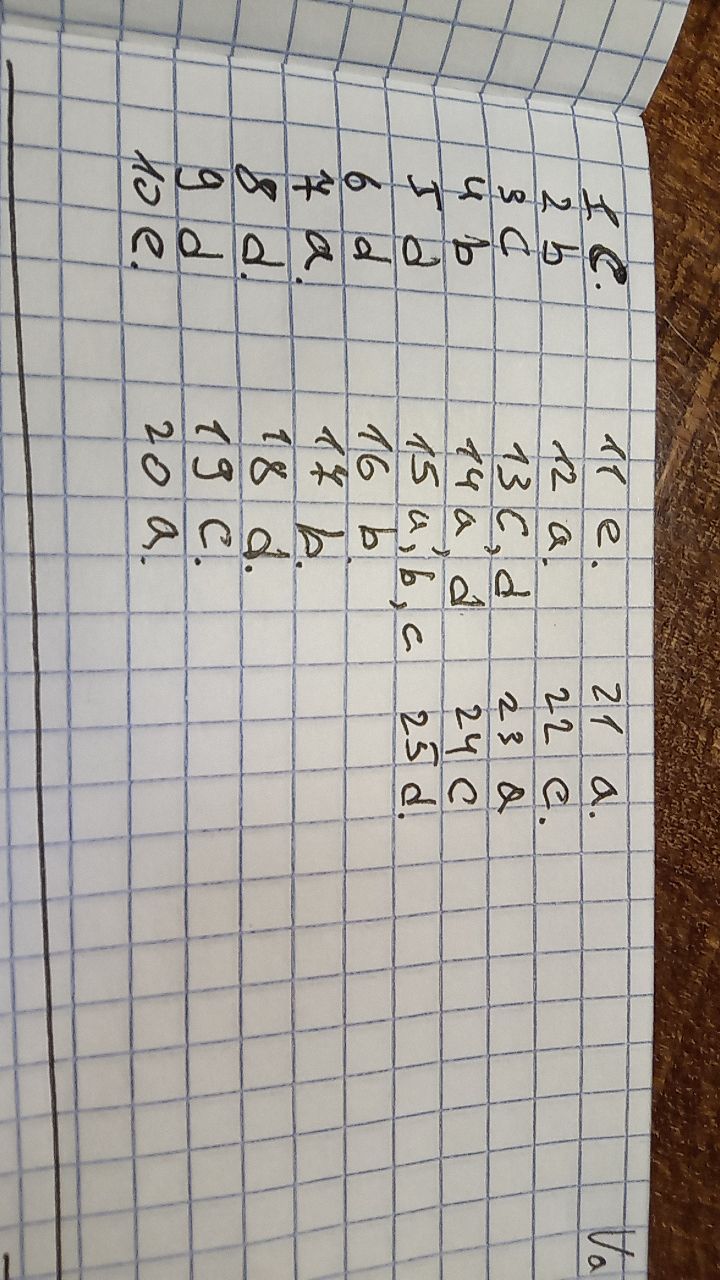 1 e.
2 b
3 c
4 b
5 d
6 d
7 a.
8 d.
9 d
10 e.
11 e.
12 a.
13 c, d
14 a, d
15 a, b, c
16 b.
17 b.
18 d.
19 c.
20 a.
21 a.
22 e.
23 a
24 c
25 d.
Va